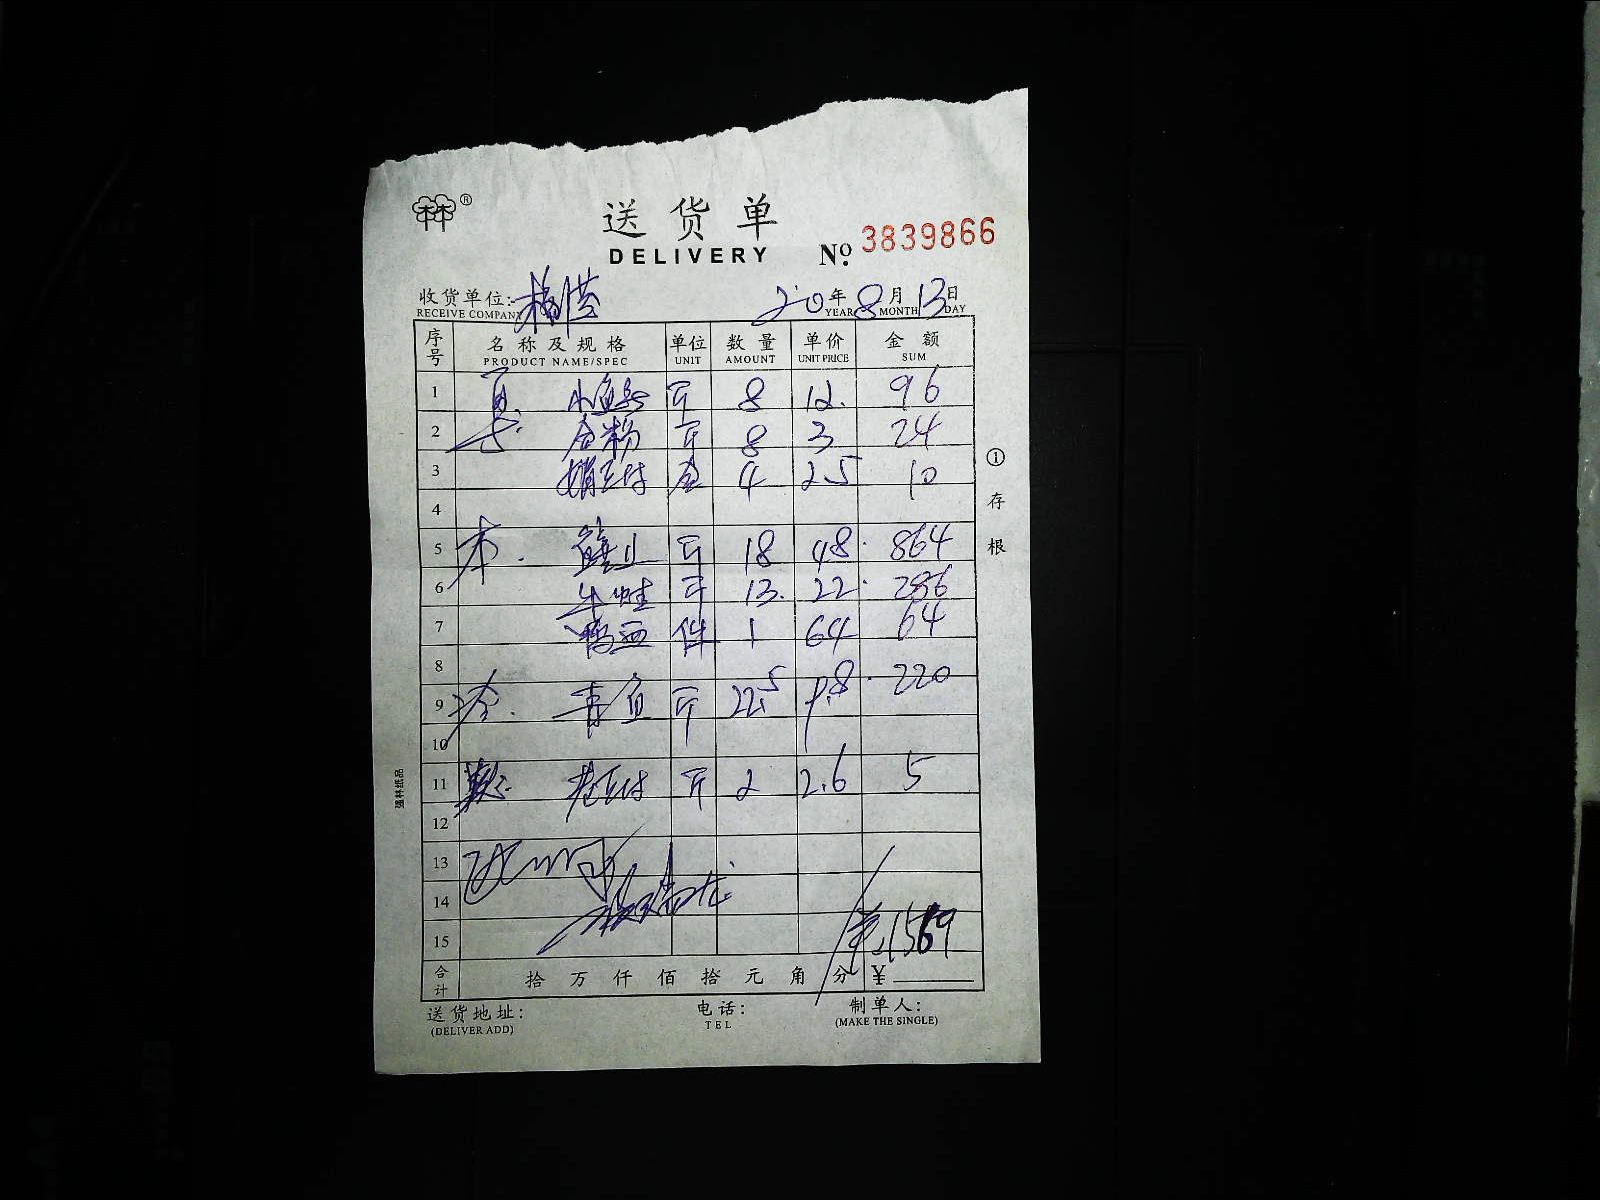 林林®
送货单
DELIVERY
№ 3839866
收货单位: 杨洪 20年8月13日
RECEIVE COMPANY YEAR MONTH DAY
序号 名称及规格 单位 数量 单价 金额
PRODUCT NAME/SPEC UNIT AMOUNT UNIT PRICE SUM
1 斤 8 12. 96
2 斤 8 3 24
3 盒 4 2.5 10
4
5 本. 斤 18 48. 864
6 牛蛙 斤 13. 22. 286
7 鸭血 件 1 64 64
8
9 青鱼 斤 22.5 9.8. 220
10
11 斤 2 2.6 5
12
13
14
15 1569
合计 拾万仟佰拾元角分 ¥
送货地址: 电话: 制单人:
(DELIVER ADD) TEL (MAKE THE SINGLE)
①存根
强林纸品